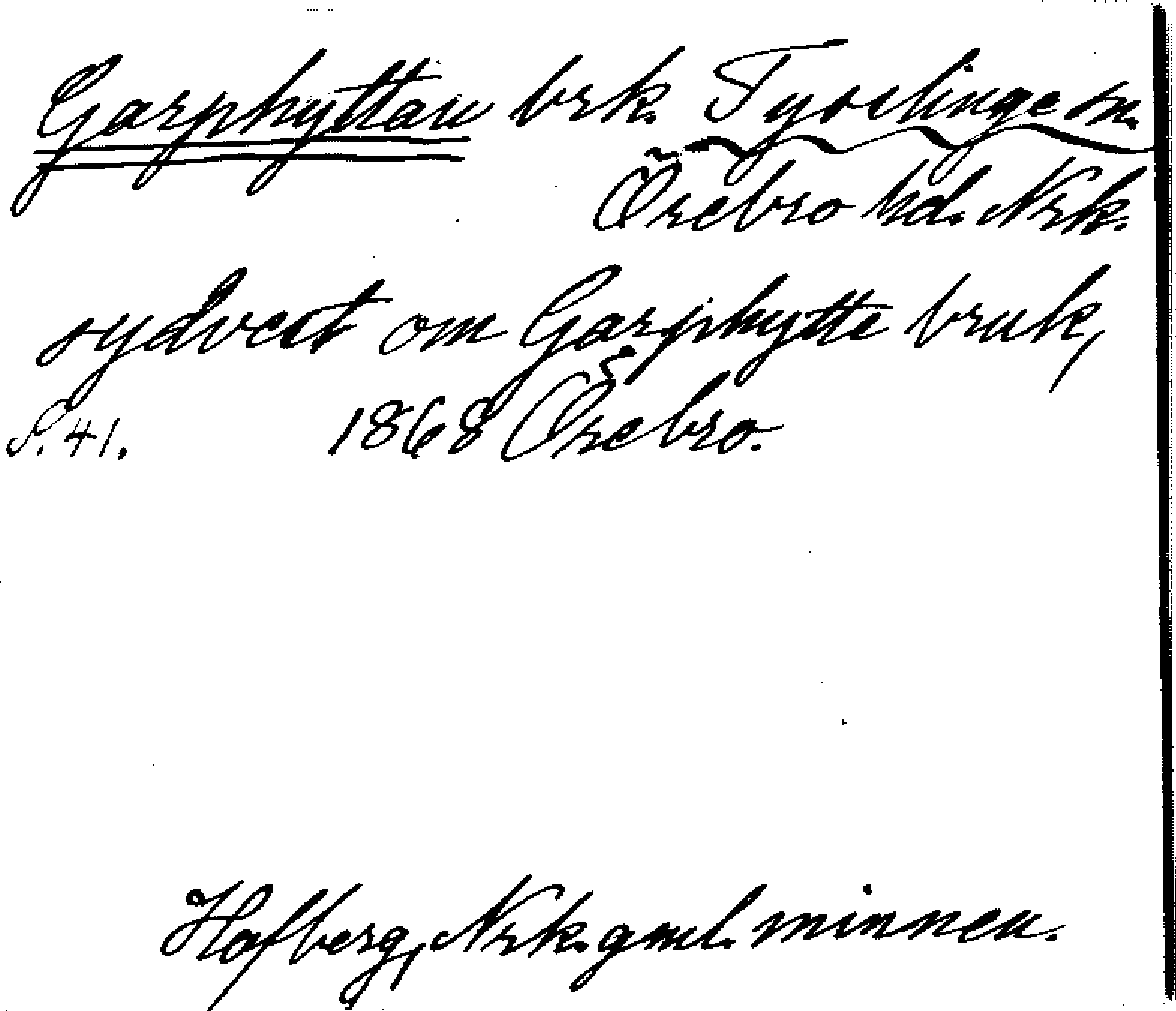 Garphyttan brk. Tysslinge sn.
Örebro hd. Nrk.
sydvest om Garphytte bruk,
S. 41. 1868 Örebro.
Hofberg, Nrk. gml. minnen.